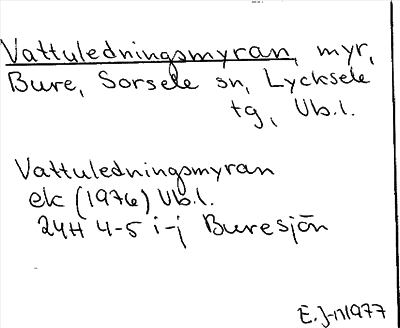 Vattuledningsmyran, myr,
Bure, Sorsele sn, Lycksele
tg, Vb.l.
Vattuledningsmyran
ek (1976) Vb.l.
24H 4-5 i-j Buresjön
E.J-n 1977